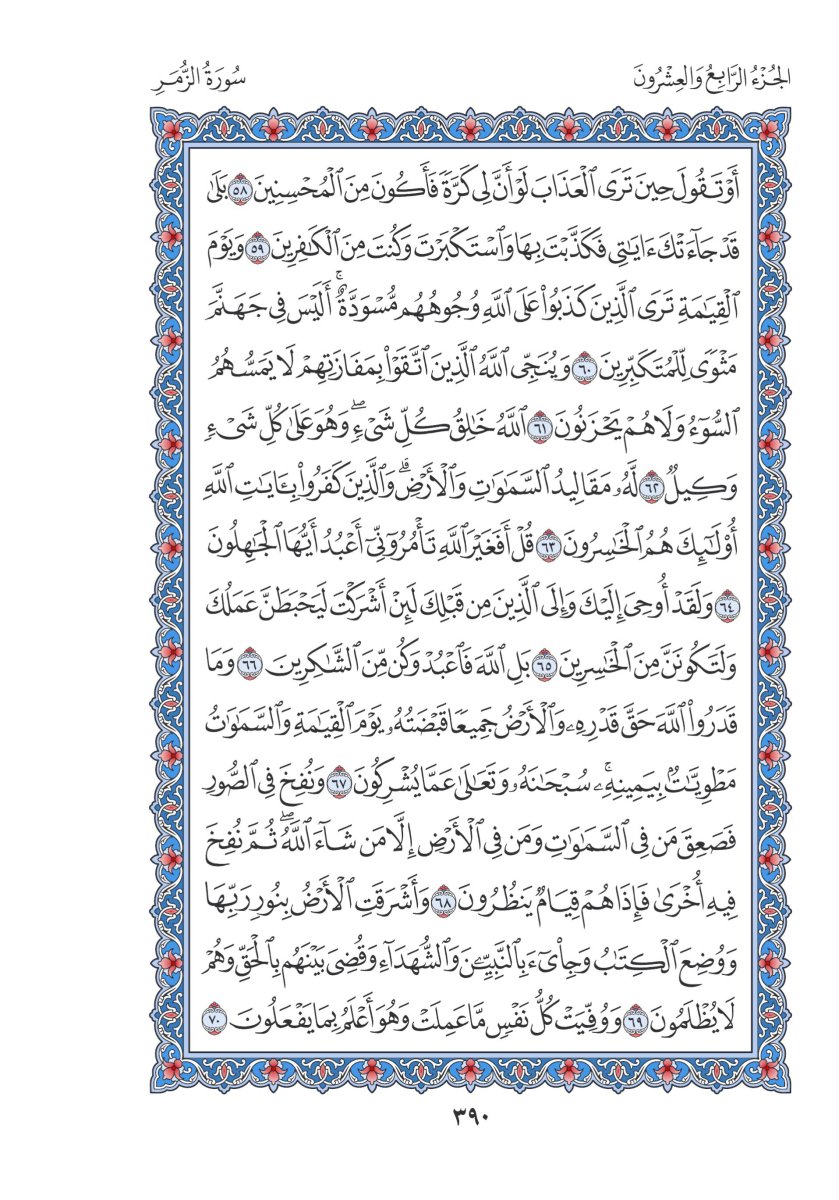 الجُزْءُ الرَّابِعُ وَالعِشْرُونَ سُورَةُ الزُّمَر
أَوْ تَقُولَ حِينَ تَرَى ٱلْعَذَابَ لَوْ أَنَّ لِى كَرَّةً فَأَكُونَ مِنَ ٱلْمُحْسِنِينَ ٥٨ بَلَىٰ
قَدْ جَآءَتْكَ ءَايَٰتِى فَكَذَّبْتَ بِهَا وَٱسْتَكْبَرْتَ وَكُنتَ مِنَ ٱلْكَٰفِرِينَ ٥٩ وَيَوْمَ
ٱلْقِيَٰمَةِ تَرَى ٱلَّذِينَ كَذَبُوا۟ عَلَى ٱللَّهِ وُجُوهُهُم مُّسْوَدَّةٌ ۚ أَلَيْسَ فِى جَهَنَّمَ
مَثْوًى لِّلْمُتَكَبِّرِينَ ٦٠ وَيُنَجِّى ٱللَّهُ ٱلَّذِينَ ٱتَّقَوْا۟ بِمَفَازَتِهِمْ لَا يَمَسُّهُمُ
ٱلسُّوٓءُ وَلَا هُمْ يَحْزَنُونَ ٦١ ٱللَّهُ خَٰلِقُ كُلِّ شَىْءٍ ۖ وَهُوَ عَلَىٰ كُلِّ شَىْءٍ
وَكِيلٌ ٦٢ لَّهُۥ مَقَالِيدُ ٱلسَّمَٰوَٰتِ وَٱلْأَرْضِ ۗ وَٱلَّذِينَ كَفَرُوا۟ بِـَٔايَٰتِ ٱللَّهِ
أُو۟لَٰٓئِكَ هُمُ ٱلْخَٰسِرُونَ ٦٣ قُلْ أَفَغَيْرَ ٱللَّهِ تَأْمُرُوٓنِّىٓ أَعْبُدُ أَيُّهَا ٱلْجَٰهِلُونَ
٦٤ وَلَقَدْ أُوحِىَ إِلَيْكَ وَإِلَى ٱلَّذِينَ مِن قَبْلِكَ لَئِنْ أَشْرَكْتَ لَيَحْبَطَنَّ عَمَلُكَ
وَلَتَكُونَنَّ مِنَ ٱلْخَٰسِرِينَ ٦٥ بَلِ ٱللَّهَ فَٱعْبُدْ وَكُن مِّنَ ٱلشَّٰكِرِينَ ٦٦ وَمَا
قَدَرُوا۟ ٱللَّهَ حَقَّ قَدْرِهِۦ وَٱلْأَرْضُ جَمِيعًا قَبْضَتُهُۥ يَوْمَ ٱلْقِيَٰمَةِ وَٱلسَّمَٰوَٰتُ
مَطْوِيَّٰتٌۢ بِيَمِينِهِۦ ۚ سُبْحَٰنَهُۥ وَتَعَٰلَىٰ عَمَّا يُشْرِكُونَ ٦٧ وَنُفِخَ فِى ٱلصُّورِ
فَصَعِقَ مَن فِى ٱلسَّمَٰوَٰتِ وَمَن فِى ٱلْأَرْضِ إِلَّا مَن شَآءَ ٱللَّهُ ۖ ثُمَّ نُفِخَ
فِيهِ أُخْرَىٰ فَإِذَا هُمْ قِيَامٌ يَنظُرُونَ ٦٨ وَأَشْرَقَتِ ٱلْأَرْضُ بِنُورِ رَبِّهَا
وَوُضِعَ ٱلْكِتَٰبُ وَجِا۟ىٓءَ بِٱلنَّبِيِّـۧنَ وَٱلشُّهَدَآءِ وَقُضِىَ بَيْنَهُم بِٱلْحَقِّ وَهُمْ
لَا يُظْلَمُونَ ٦٩ وَوُفِّيَتْ كُلُّ نَفْسٍ مَّا عَمِلَتْ وَهُوَ أَعْلَمُ بِمَا يَفْعَلُونَ ٧٠
٣٩٠